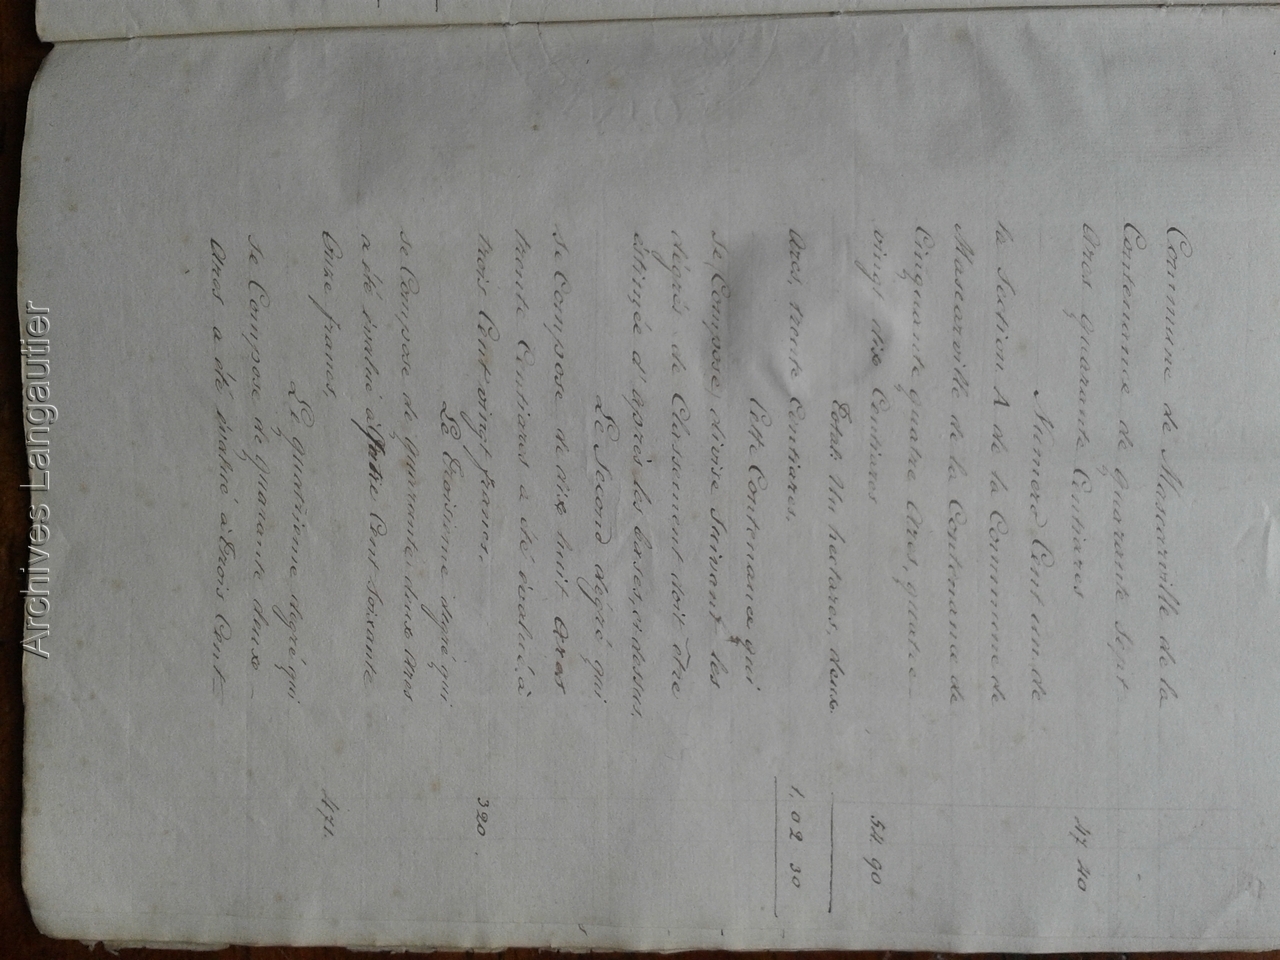 Commune de Mascarville de la
Contenance de quarante sept
Ares quarante Centiares 47 40
Numéro Cent un de
la Section A de la Commune de
Mascarville de la Contenance de
Cinquante quatre Ares, quatre
vingt dix Centiares 54. 90
Total. Un hectares, deux.
Ares, trente Centiares. 1. 02 30
Cette Contenance qui
se Compose divisé suivant les
dégrés de Classement doit être
éstimée d'après les bases, ci dessus.
Le Second dégré qui
se Compose de dix huit Ares
trente Centiares a été évalué, à
trois Cent vingt francs. 320.
Le troisième dégré qui
se Compose de quarante deux Ares
a été évalué à quatre Cent soixante
Onze francs, 471.
Le quatrième degré qui
se Compose de quarante deux
Ares a été évalué à trois Cent
Archives Langautier